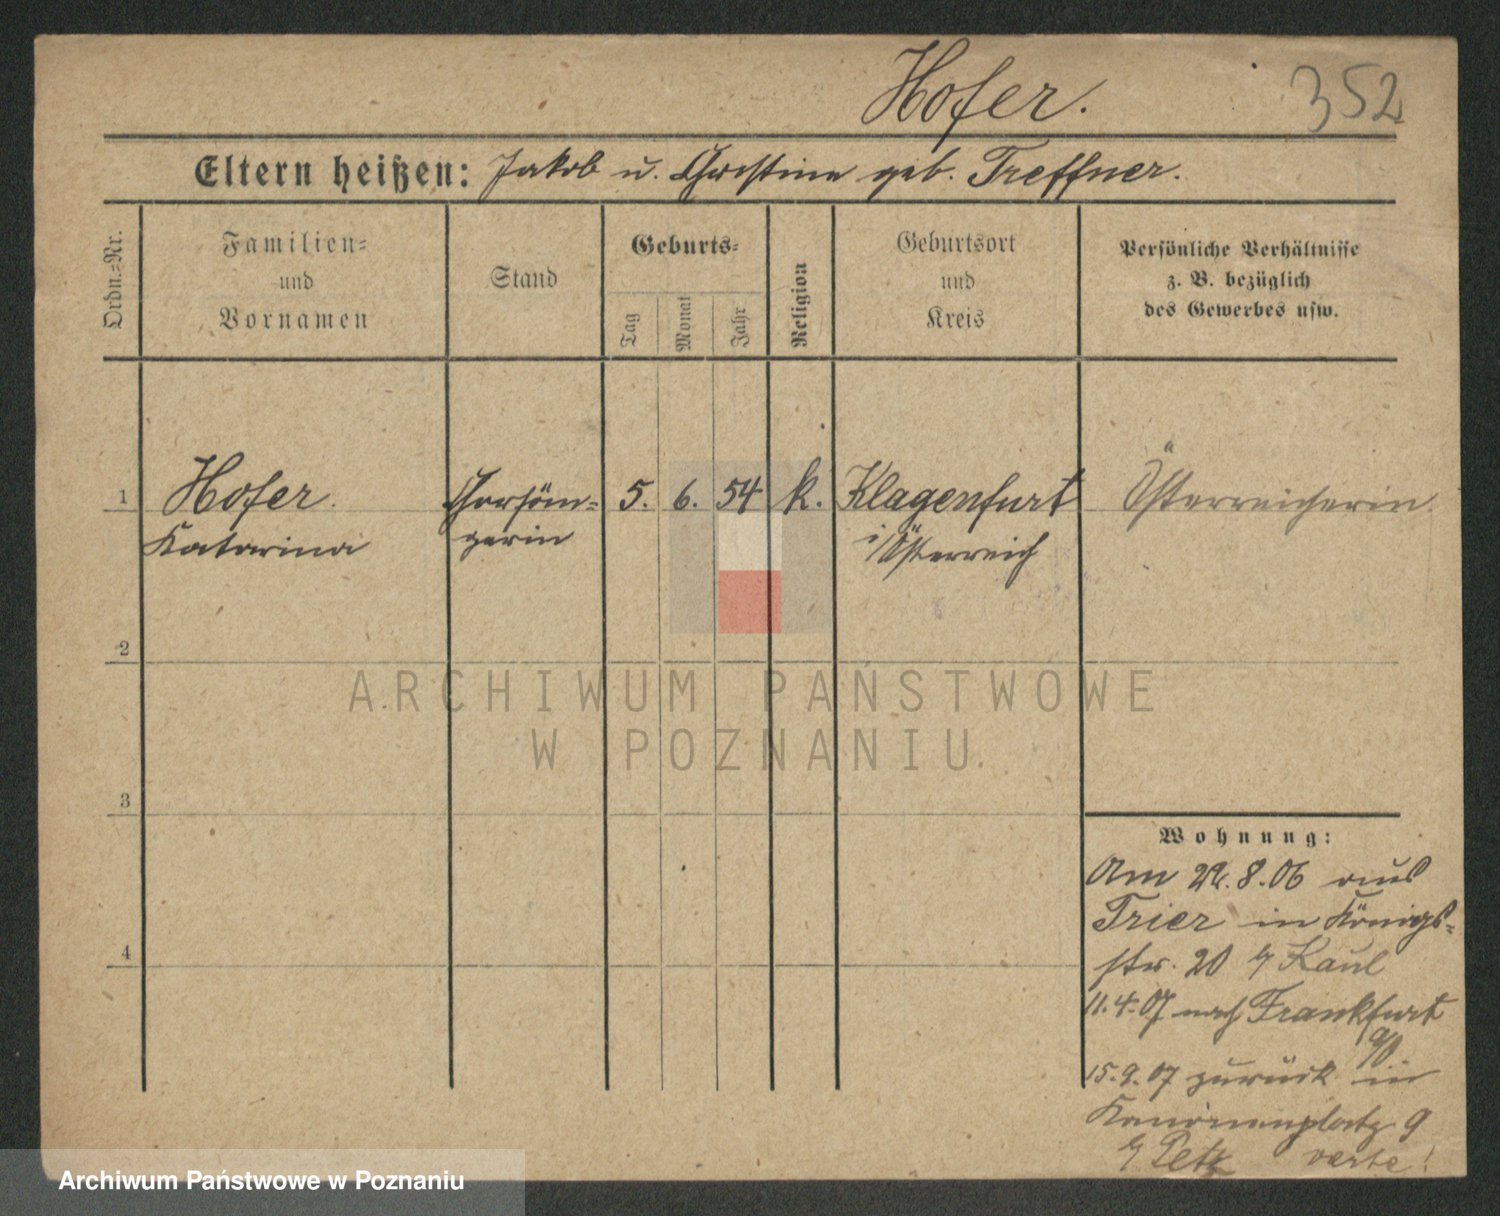 Hofer. 352
Eltern heißen: Jakob u. Christine geb. Treffner.
Ordn.=Nr.
Familien=
und
Vornamen
Stand
Geburts=
Tag
Monat
Jahr
Religion
Geburtsort
und
Kreis
Persönliche Verhältnisse
z. B. bezüglich
des Gewerbes usw.
1 Hofer. Chorsän= 5. 6. 54 k. Klagenfurt Österreicherin.
Katarina gerin i/Österreich
2
3
4
Wohnung:
Am 22.8.06 aus
Trier in Königs=
str. 20 b/ Kaul
11.4.07 nach Frankfurt
a/O.
15.9.07 zurück in
Kanonenplatz 9
b/ Petz verte!
ARCHIWUM PAŃSTWOWE
W POZNANIU
Archiwum Państwowe w Poznaniu